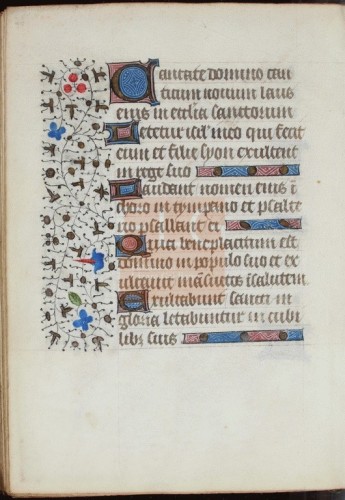 Cantate domino can
ticum nouum laus
eius in ecclia sanctorum
Letetur isrl in eo qui fecit
eum et filie syon exultent
in rege suo
Laudant nomen eius i
choro in tympano et psalte
rio psallant ei
Quia beneplacitum est
domino in populo suo et ex
altauit mansuetos i salutem
Exultabunt sancti in
gloria letabuntur in cubi
libus suis